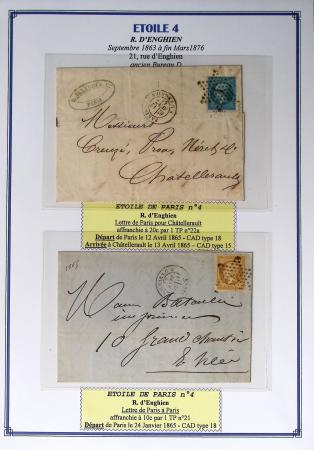 ETOILE 4
R. D'ENGHIEN
Septembre 1863 à fin Mars1876
21, rue d'Enghien
ancien Bureau D
PARIS
Messieurs
Creuzé, Proa,
Châtellerault
ETOILE DE PARIS n°4
R. d'Enghien
Lettre de Paris pour Châtellerault
affranchie à 20c par 1 TP n°22a
Départ de Paris le 12 Avril 1865 - CAD type 18
Arrivée à Châtellerault le 13 Avril 1865 - CAD type 15
1865
10 Grand
ETOILE DE PARIS n°4
R. d'Enghien
Lettre de Paris à Paris
affranchie à 10c par 1 TP n°21
Départ de Paris le 24 Janvier 1865 - CAD type 18